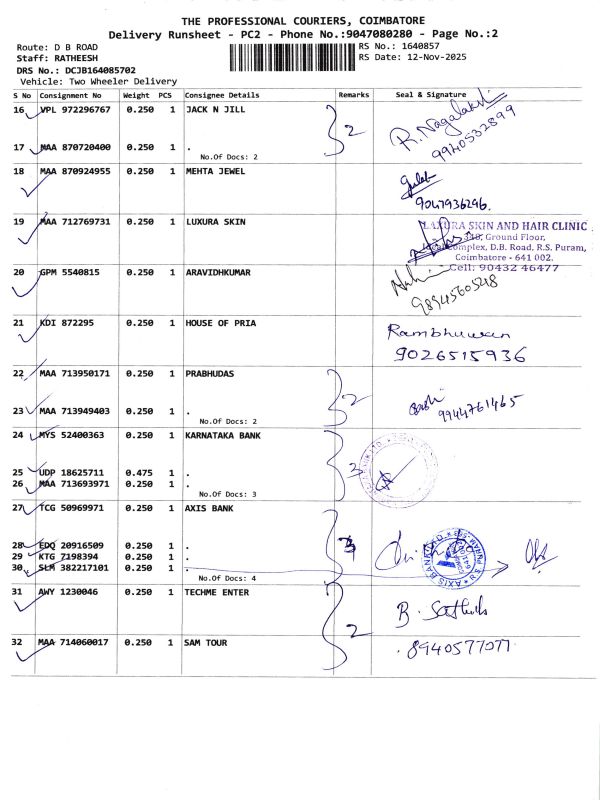 THE PROFESSIONAL COURIERS, COIMBATORE
Delivery Runsheet - PC2 - Phone No.:9047080280 - Page No.:2
Route: D B ROAD
RS No.: 1640857
Staff: RATHEESH
RS Date: 12-Nov-2025
DRS No.: DCJB164085702
Vehicle: Two Wheeler Delivery
S No Consignment No Weight PCS Consignee Details Remarks Seal & Signature
16 VPL 972296767 0.250 1 JACK N JILL
R. Nagalakshmi
9940532899
2
17 MAA 870720400 0.250 1 .
No.Of Docs: 2
18 MAA 870924955 0.250 1 MEHTA JEWEL
Gulab
9047936296.
19 MAA 712769731 0.250 1 LUXURA SKIN
LAXURA SKIN AND HAIR CLINIC
Ground Floor,
Complex, D.B. Road, R.S. Puram,
Coimbatore - 641 002.
Cell: 90432 46477
20 GPM 5540815 0.250 1 ARAVIDHKUMAR
9894560548
21 KDI 872295 0.250 1 HOUSE OF PRIA
Rambhuwan
9026515936
22 MAA 713950171 0.250 1 PRABHUDAS
2
9944761465
23 MAA 713949403 0.250 1 .
No.Of Docs: 2
24 MYS 52400363 0.250 1 KARNATAKA BANK
3
25 UDP 18625711 0.475 1 .
26 MAA 713693971 0.250 1 .
No.Of Docs: 3
27 TCG 50969971 0.250 1 AXIS BANK
28 EDQ 20916509 0.250 1 .
29 KTG 7198394 0.250 1 .
30 SLM 382217101 0.250 1 .
AXIS BANK
No.Of Docs: 4
31 AWY 1230046 0.250 1 TECHME ENTER
2
32 MAA 714060017 0.250 1 SAM TOUR
8940577077